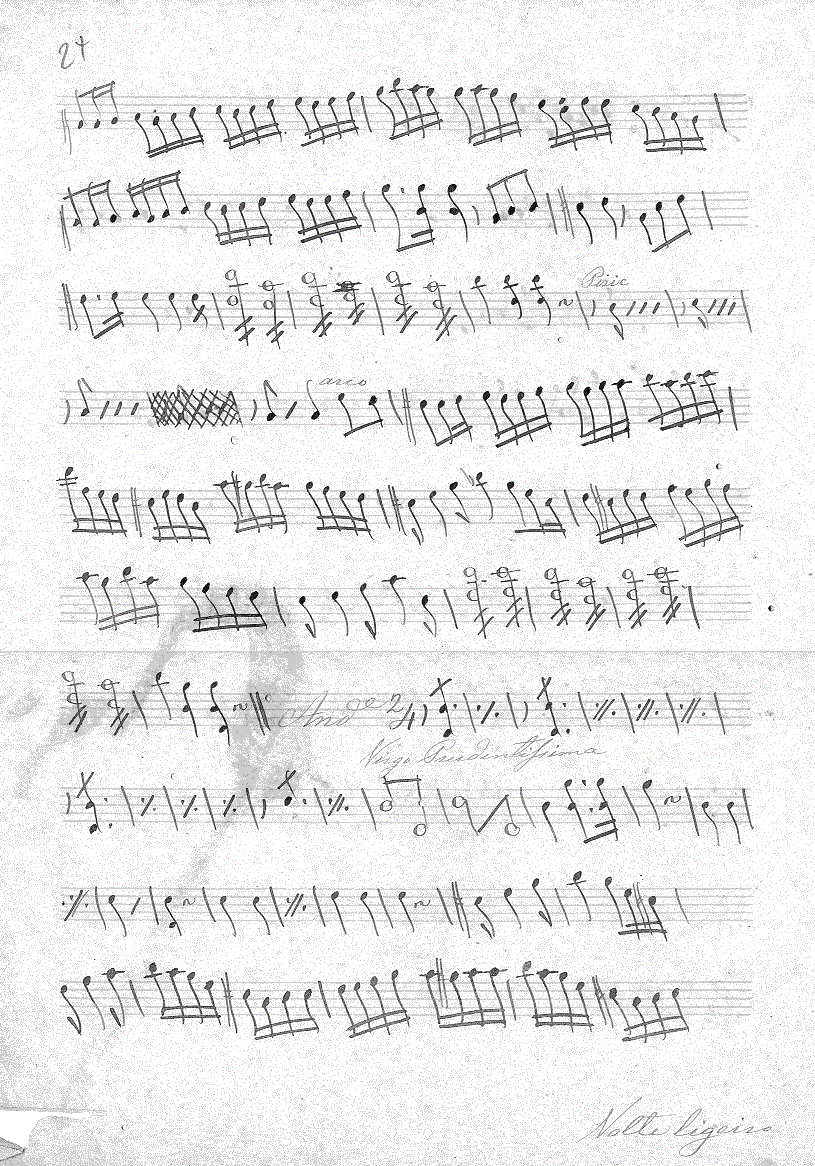 24
arco
And.e 2/4
Virgo Prudentissima
Volte ligeiro